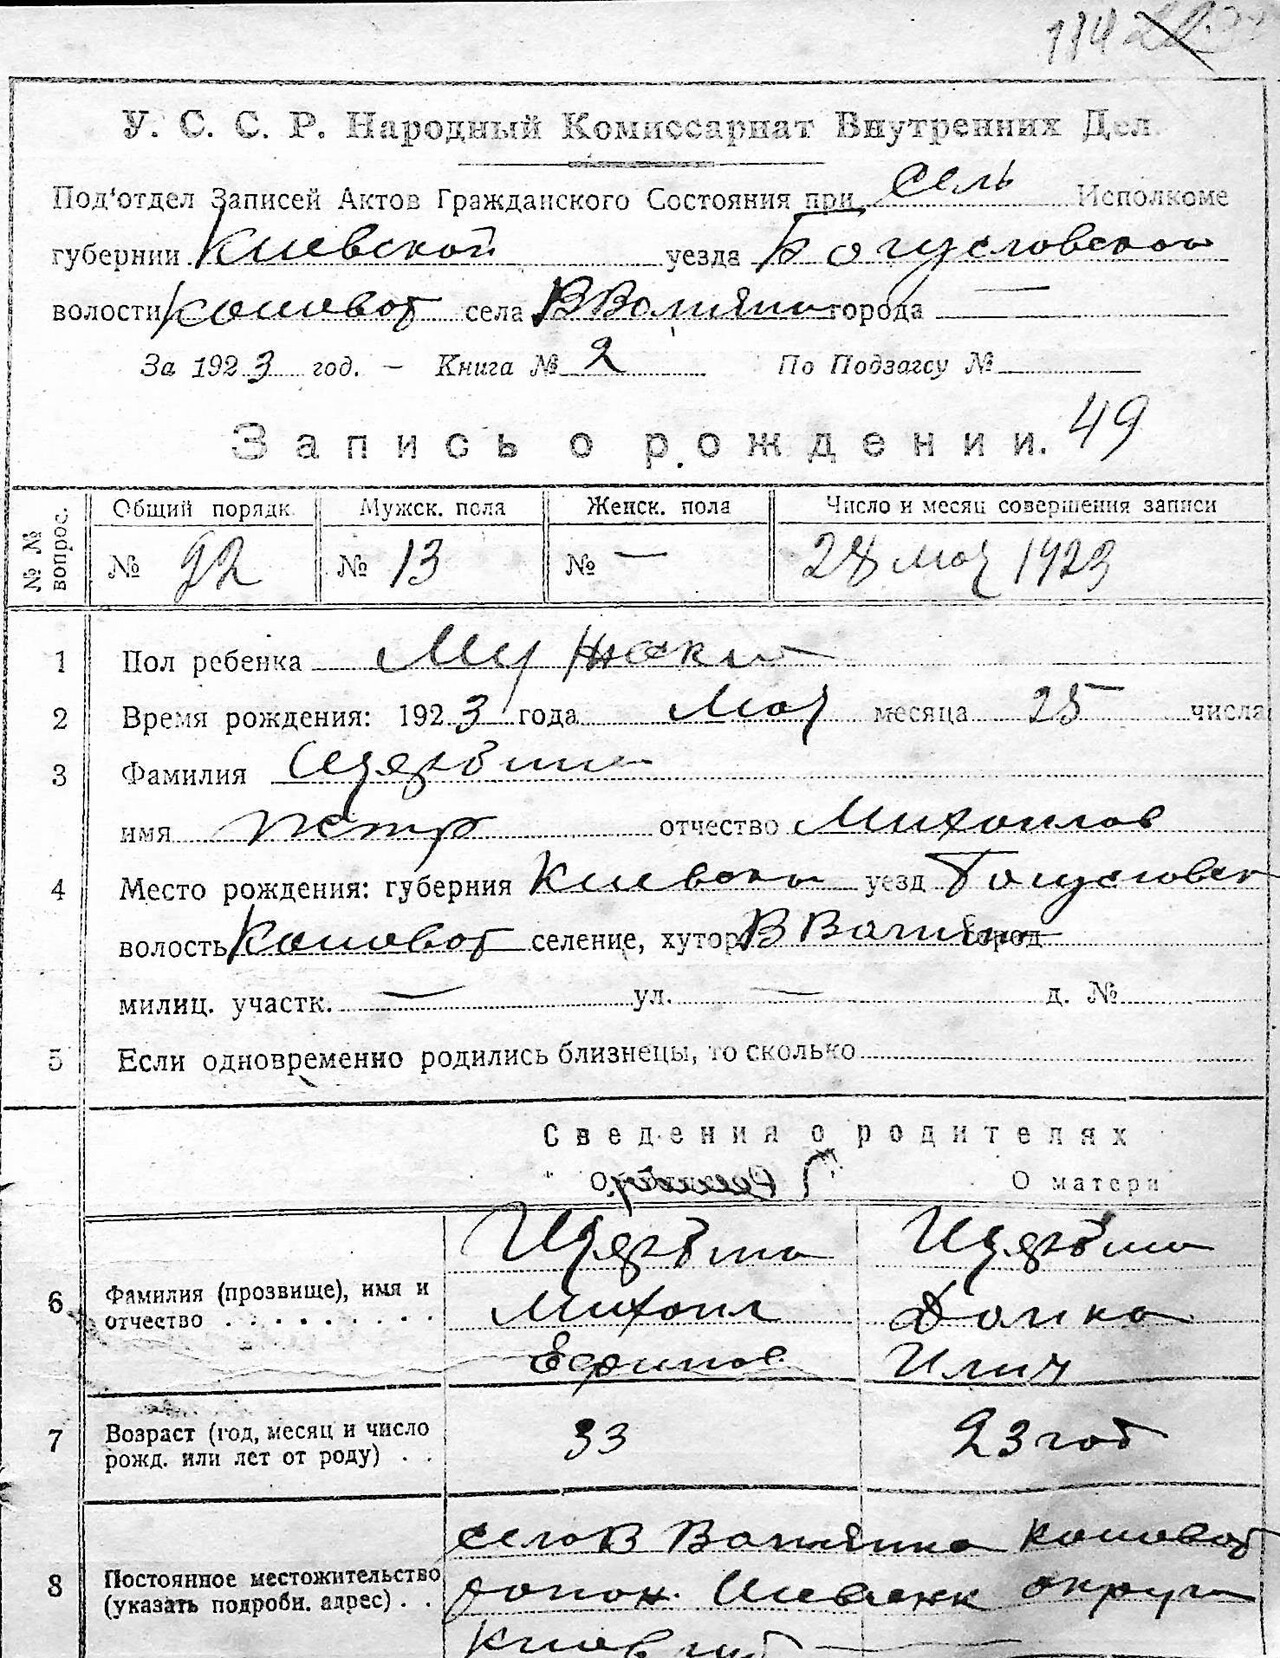 114
У. С. С. Р. Народный Комиссариат Внутренних Дел.
Под'отдел Записей Актов Гражданского Состояния при сель Исполкоме
губернии Киевской уезда Богусловской
волости села города
За 1923 год. — Книга № 2 По Подзагсу №
Запись о рождении. 49
№ № вопрос. Общий порядк. Мужск. пола Женск. пола Число и месяц совершения записи
№ 22 № 13 № — 28 мая 1923
1 Пол ребенка Мужски
2 Время рождения: 1923 года мая месяца 25 числа
3 Фамилия
имя Петр отчество Михаилов
4 Место рождения: губерния Киевска уезд Богусловск
волость селение, хутор город
милиц. участк. — ул. — д. №
5 Если одновременно родились близнецы, то сколько
Сведения о родителях
О матери
6 Фамилия (прозвище), имя и отчество
Михаил Домка
Ефимов. Илич
7 Возраст (год, месяц и число рожд. или лет от роду) 33 23 год
8 Постоянное местожительство (указать подробн. адрес)
село В округи